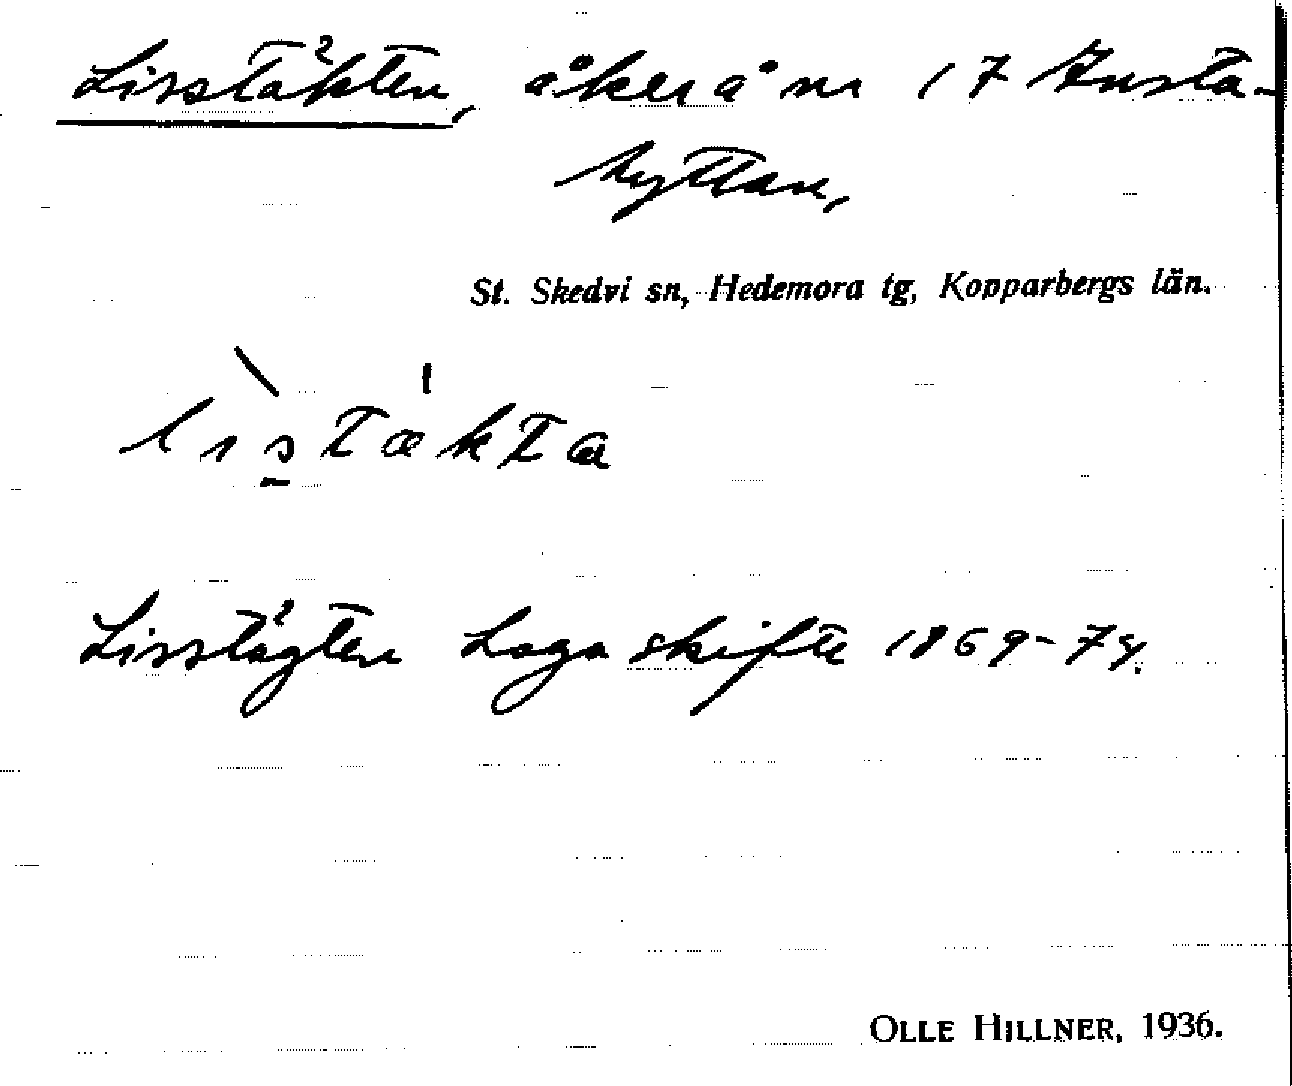 Lisstäkten, åker å nr 17 Knusta-
hyttan,
St. Skedvi sn, Hedemora tg, Kopparbergs län.
lıstækta
Lisstägten Laga skifte 1869-74.
OLLE HILLNER, 1936.